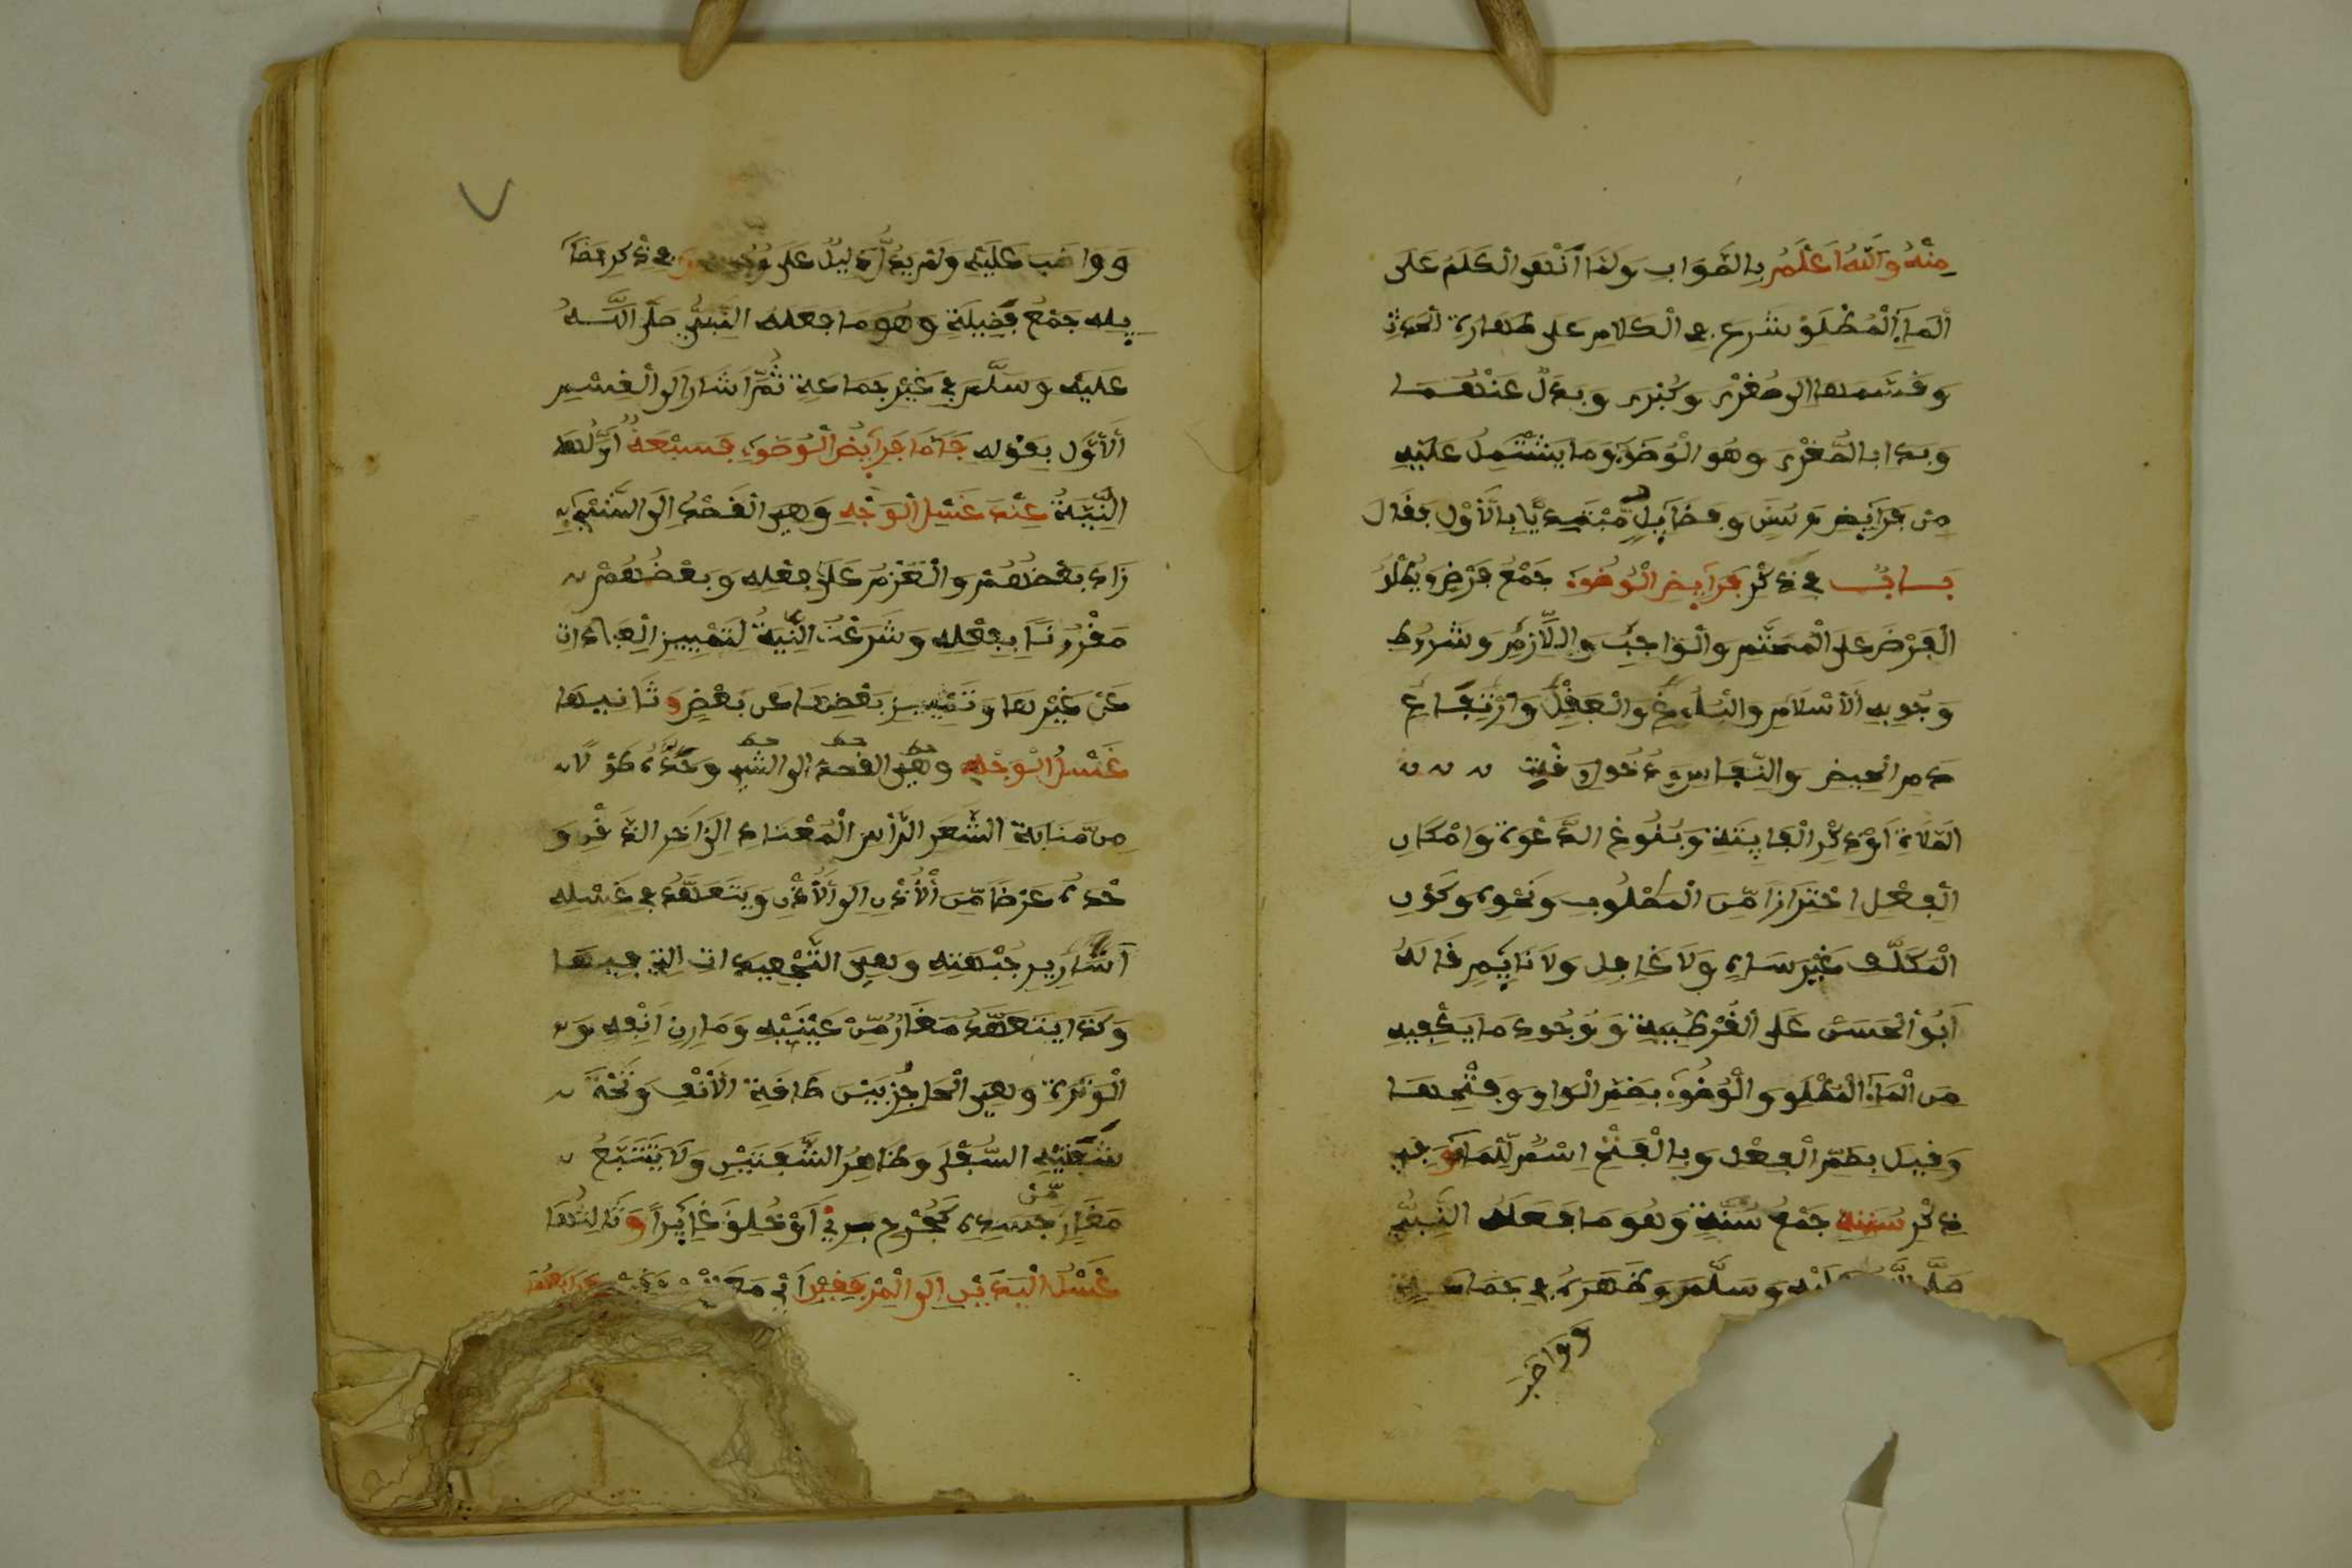 مِنْهُ وَاللَّهُ أَعْلَمُ بِالصَّوَابِ وَلَمَّا أَنْهَى الْكَلَمَ عَلَى
الْمَاءِ الْمُطْلَقِ شَرَعَ فِي الْكَلَامِ عَلَى طَهَارَةِ الْحَدَثِ
وَقَسَّمَهَا إِلَى صُغْرَى وَكُبْرَى وَبَدَلٍ عَنْهُمَا
وَبَدَا بِالصُّغْرَى وَهُوَ الْوُضُوءُ وَمَا يَشْتَمِلُ عَلَيْهِ
مِنْ فَرَائِضَ وَسُنَنٍ وَفَضَائِلَ مُبْتَدِئًا بِالْأَوَّلِ فَقَالَ
بَابٌ فِي ذِكْرِ فَرَائِضِ الْوُضُوءِ جَمْعُ فَرْضٍ وَيُطْلَقُ
الْفَرْضُ عَلَى الْمُحَتَّمِ وَالْوَاجِبِ وَاللَّازِمِ وَشُرُوطِ
وُجُوبِهِ الْإِسْلَامِ وَالْبُلُوغِ وَالْعَقْلِ وَارْتِفَاعِ
دَمِ الْحَيْضِ وَالنِّفَاسِ وَدُخُولِ وَقْتِ
الصَّلَاةِ أَوْ ذِكْرِ الْفَايِتَةِ وَبُلُوغِ الدَّعْوَةِ وَإِمْكَانِ
الْفِعْلِ احْتِرَازًا مِّنَ الْمَصْلُوبِ وَنَحْوِهِ وَكَوْنِ
الْمُكَلَّفِ غَيْرَ سَاهٍ وَلَا غَافِلٍ وَلَا نَايِمٍ قَالَهُ
أَبُو الْحَسَنِ عَلَى الْقُرْطُبِيَّةِ وَوُجُودِ مَا يَكْفِيهِ
مِنَ الْمَاءِ الْمُطْلَقِ وَالْوُضُوءُ بِضَمِّ الْوَاوِ وَفَتْحِهَا
وَقِيلَ بِضَمِّ الْفِعْلِ وَبِالْفَتْحِ اسْمٌ لِّلْمَاءِ وَفِي
ذِكْرِ سُنَنِهِ جَمْعُ سُنَّةٍ وَهُوَ مَا فَعَلَهُ النَّبِيُّ
صَلَّى اللَّهُ عَلَيْهِ وَسَلَّمَ وَظَهَرَهُ فِي جَمَاعَةٍ
وَوَاضَبَ
وَوَاضَبَ عَلَيْهِ وَلَمْ يَدُلَّ دَلِيلٌ عَلَى وُجُوبِهِ وَفِي ذِكْرِ فَضَا
يِلِهِ جَمْعُ فَضِيلَةٍ وَهُوَ مَا فَعَلَهُ النَّبِيُّ صَلَّى اللَّهُ
عَلَيْهِ وَسَلَّمَ فِي غَيْرِ جَمَاعَةٍ ثُمَّ أَشَارَ إِلَى الْقِسْمِ
الْأَوَّلِ بِقَوْلِهِ فَأَمَّا فَرَائِضُ الْوُضُوءِ فَسَبْعَةٌ أَوَّلُهَا
النِّيَّةُ عِنْدَ غَسْلِ الْوَجْهِ وَهِيَ الْقَصْدُ إِلَى الشَّيْءِ
زَادَ بَعْضُهُمْ وَالْعَزْمُ عَلَى فِعْلِهِ وَبَعْضُهُمْ
مَقْرُونًا بِفِعْلِهِ وَشُرِعَتُ النِّيَّةُ لِتَمْيِيزِ الْعِبَادَاتِ
عَنْ غَيْرِهَا وَتَمْيِيزِ بَعْضِهَا عَنْ بَعْضٍ وَثَانِيهَا
غَسْلُ الْوَجْهِ وهي القصد إلى الشيء وَحَدُّهُ طُولًا
مِن مَّنَابِتِ الشَّعَرِ الرَّأْسِ الْمُعْتَادِ إِلَى آخِرِ الذَّقَنِ وَ
حَدُّهُ عَرْضًا مِّنَ الْأُذُنِ إِلَى الْأُذُنِ وَيَتَعَهَّدُ فِي غَسْلِهِ
أَسَارِيرَ جَبْهَتِهِ وَهِيَ التَّجْعِيدَاتُ الَّتِي فِيهَا
وَكَذَا يَتَعَهَّدُ مَغَارَ مِّنْ عَيْنَيْهِ وَمَارِنَ أَنْفِهِ وَ
الْوَتَرَةَ وَهِيَ الْحَاجِزُ بَيْنَ طَاقَةِ الْأَنْفِ وَتَحْتَ
شَفَتَيْهِ السُّفْلَى وَظَاهِرُ الشَّفَتَيْنِ وَلَا يَتَتَبَّعُ
مَغَارَ مِّنْ جَسَدِهِ كَجُرْحٍ بَرِئَ أَوْ خُلِقَ غَايِرًا وَثَالِثُهَا
غَسْلُ الْيَدَيْنِ إِلَى الْمِرْفَقَيْنِ أَيْ مَعَ